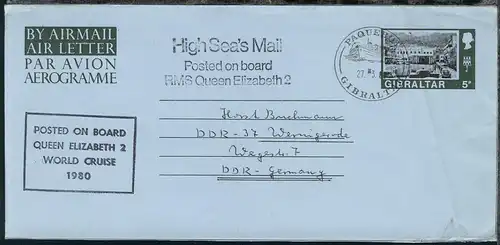 BY AIRMAIL
AIR LETTER
PAR AVION
AEROGRAMME
High Sea's Mail
Posted on board
RMS Queen Elizabeth 2
PAQUE
27
GIBRALTA
GIBRALTAR
5p
POSTED ON BOARD
QUEEN ELIZABETH 2
WORLD CRUISE
1980
Horst Buchmann
DDR-37 Wernigerode
Wegestr. 7
DDR-Germany